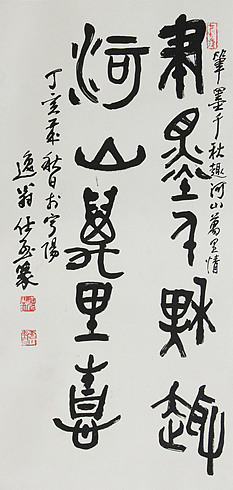 筆墨千秋趣
河山萬里情
筆墨千秋趣河山萬里情
丁亥年秋日於宁陽
逸翁作玉篆